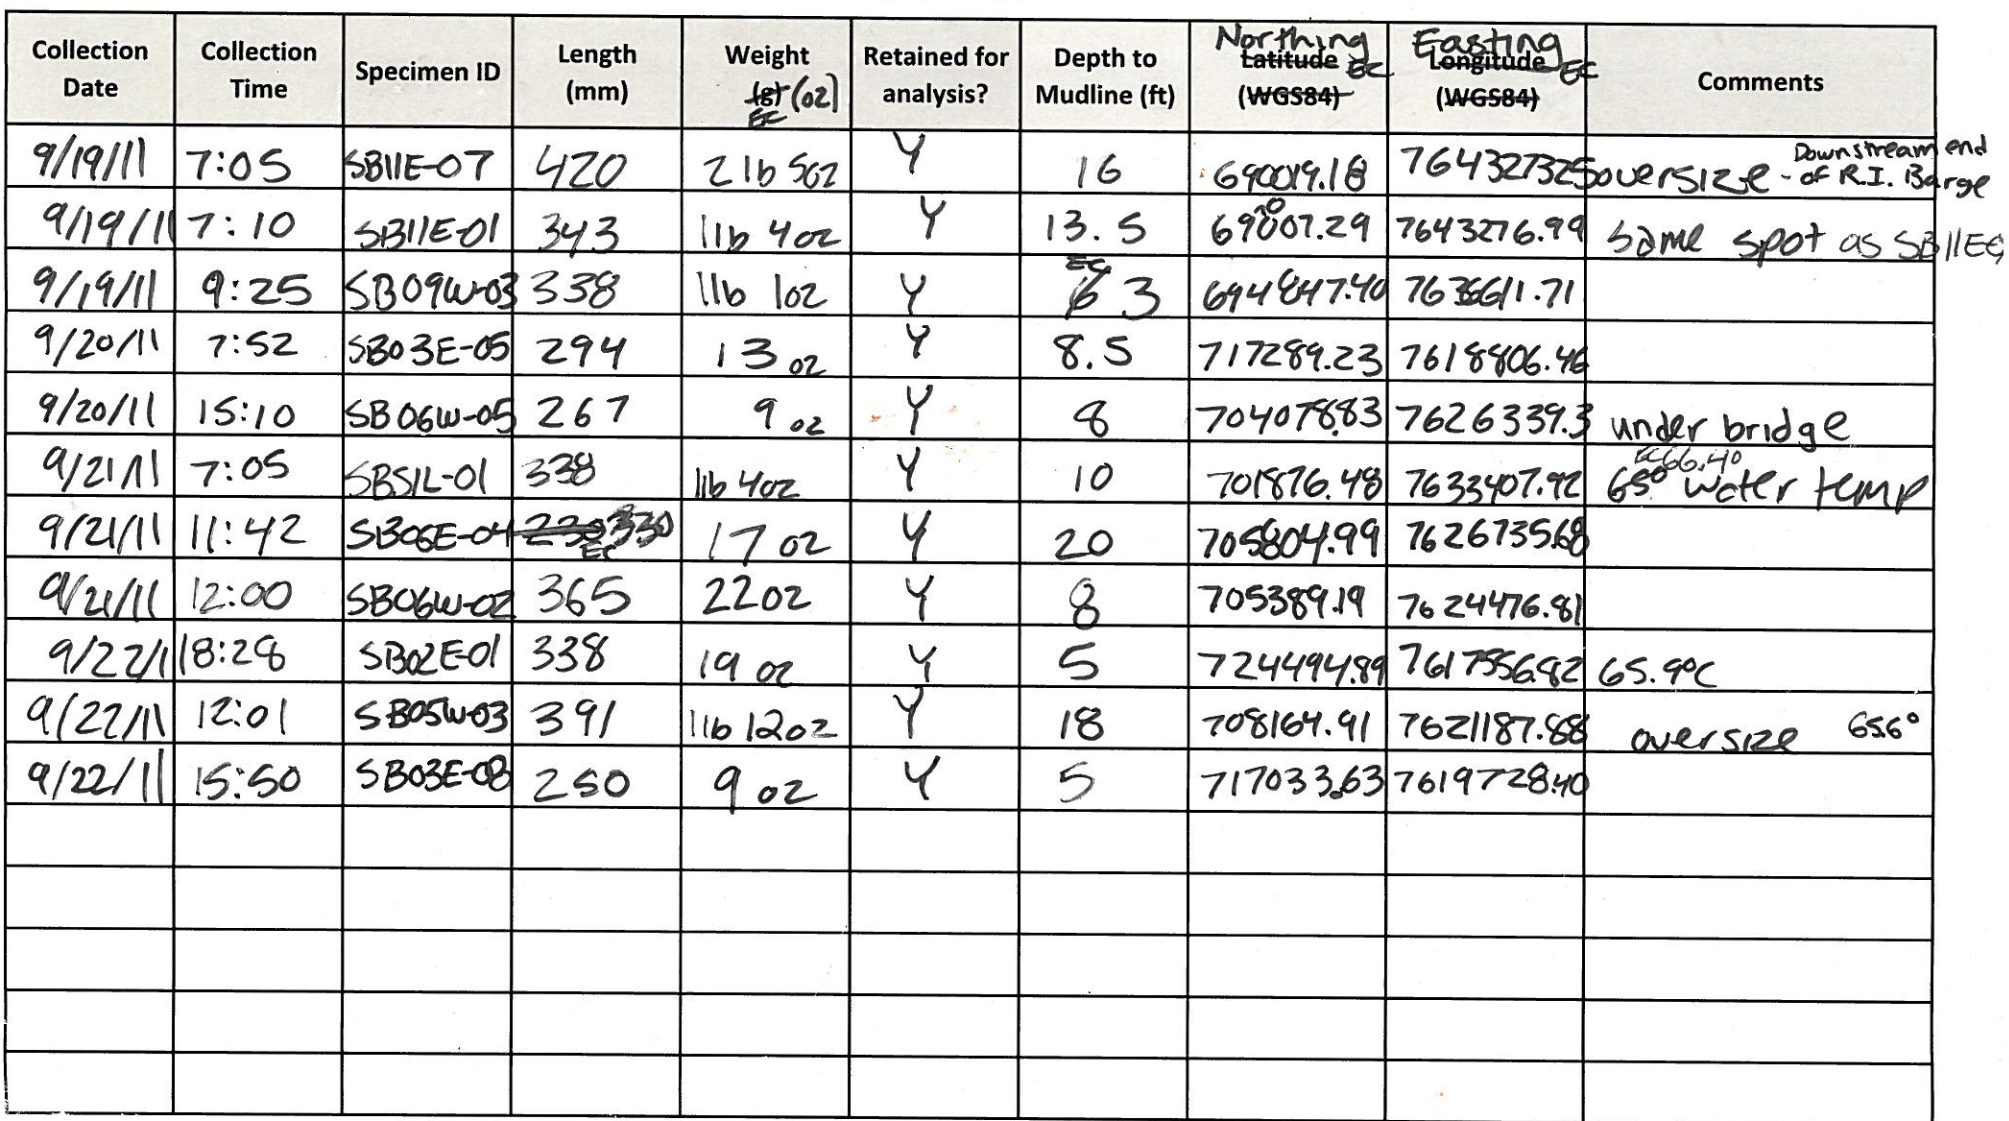 Collection Date Collection Time Specimen ID Length (mm) Weight (g) (oz) EC Retained for analysis? Depth to Mudline (ft) Northing Latitude EC (WGS84) Easting Longitude EC (WGS84) Comments
9/19/11 7:05 SB11E-07 420 2 lb 5oz Y 16 690019.18 7643273.25 oversize - Downstream end of R.I. Barge
9/19/11 7:10 SB11E-01 343 1lb 4oz Y 13.5 7643276.99 same spot as SB11E
9/19/11 9:25 SB09W-03 338 1lb 1oz Y EC 3 694847.40 7636611.71
9/20/11 7:52 SB03E-05 294 13 oz Y 8.5 717289.23 7618806.46
9/20/11 15:10 SB06W-05 267 9 oz Y 8 704078.83 7626339.3 under bridge
9/21/11 7:05 SBS1L-01 338 1lb 4oz Y 10 701876.48 7633407.92 65° 66.40 water temp
9/21/11 11:42 SB06E-04 230 EC 330 17 oz Y 20 705804.99 7626735.68
9/21/11 12:00 SB06W-02 365 22 oz Y 8 705389.19 7624476.81
9/22/11 8:28 SB02E-01 338 19 oz Y 5 724494.89 7617556.82 65.9°C
9/22/11 12:01 SB05W-03 391 1lb 12oz Y 18 708164.91 7621187.88 oversize 65.6°
9/22/11 15:50 SB03E-08 250 9 oz Y 5 717033.63 7619728.40